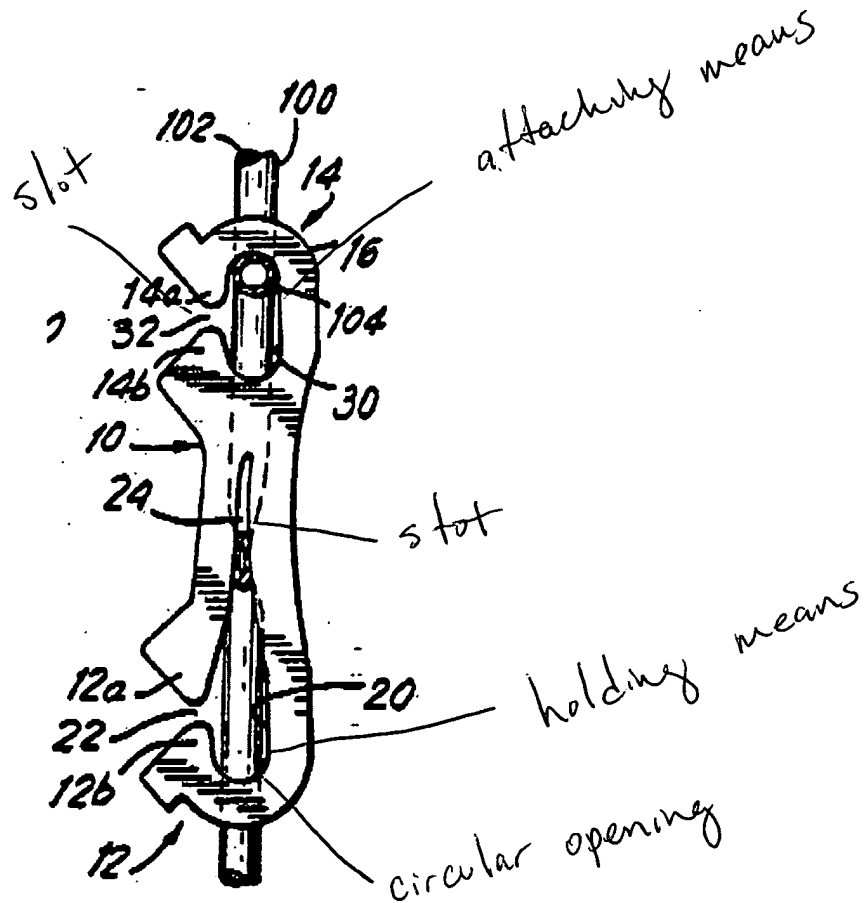 attaching means
100
102
slot
14
16
14a
32
104
14b
30
10
24
slot
12a
20
holding means
22
12b
12
circular opening